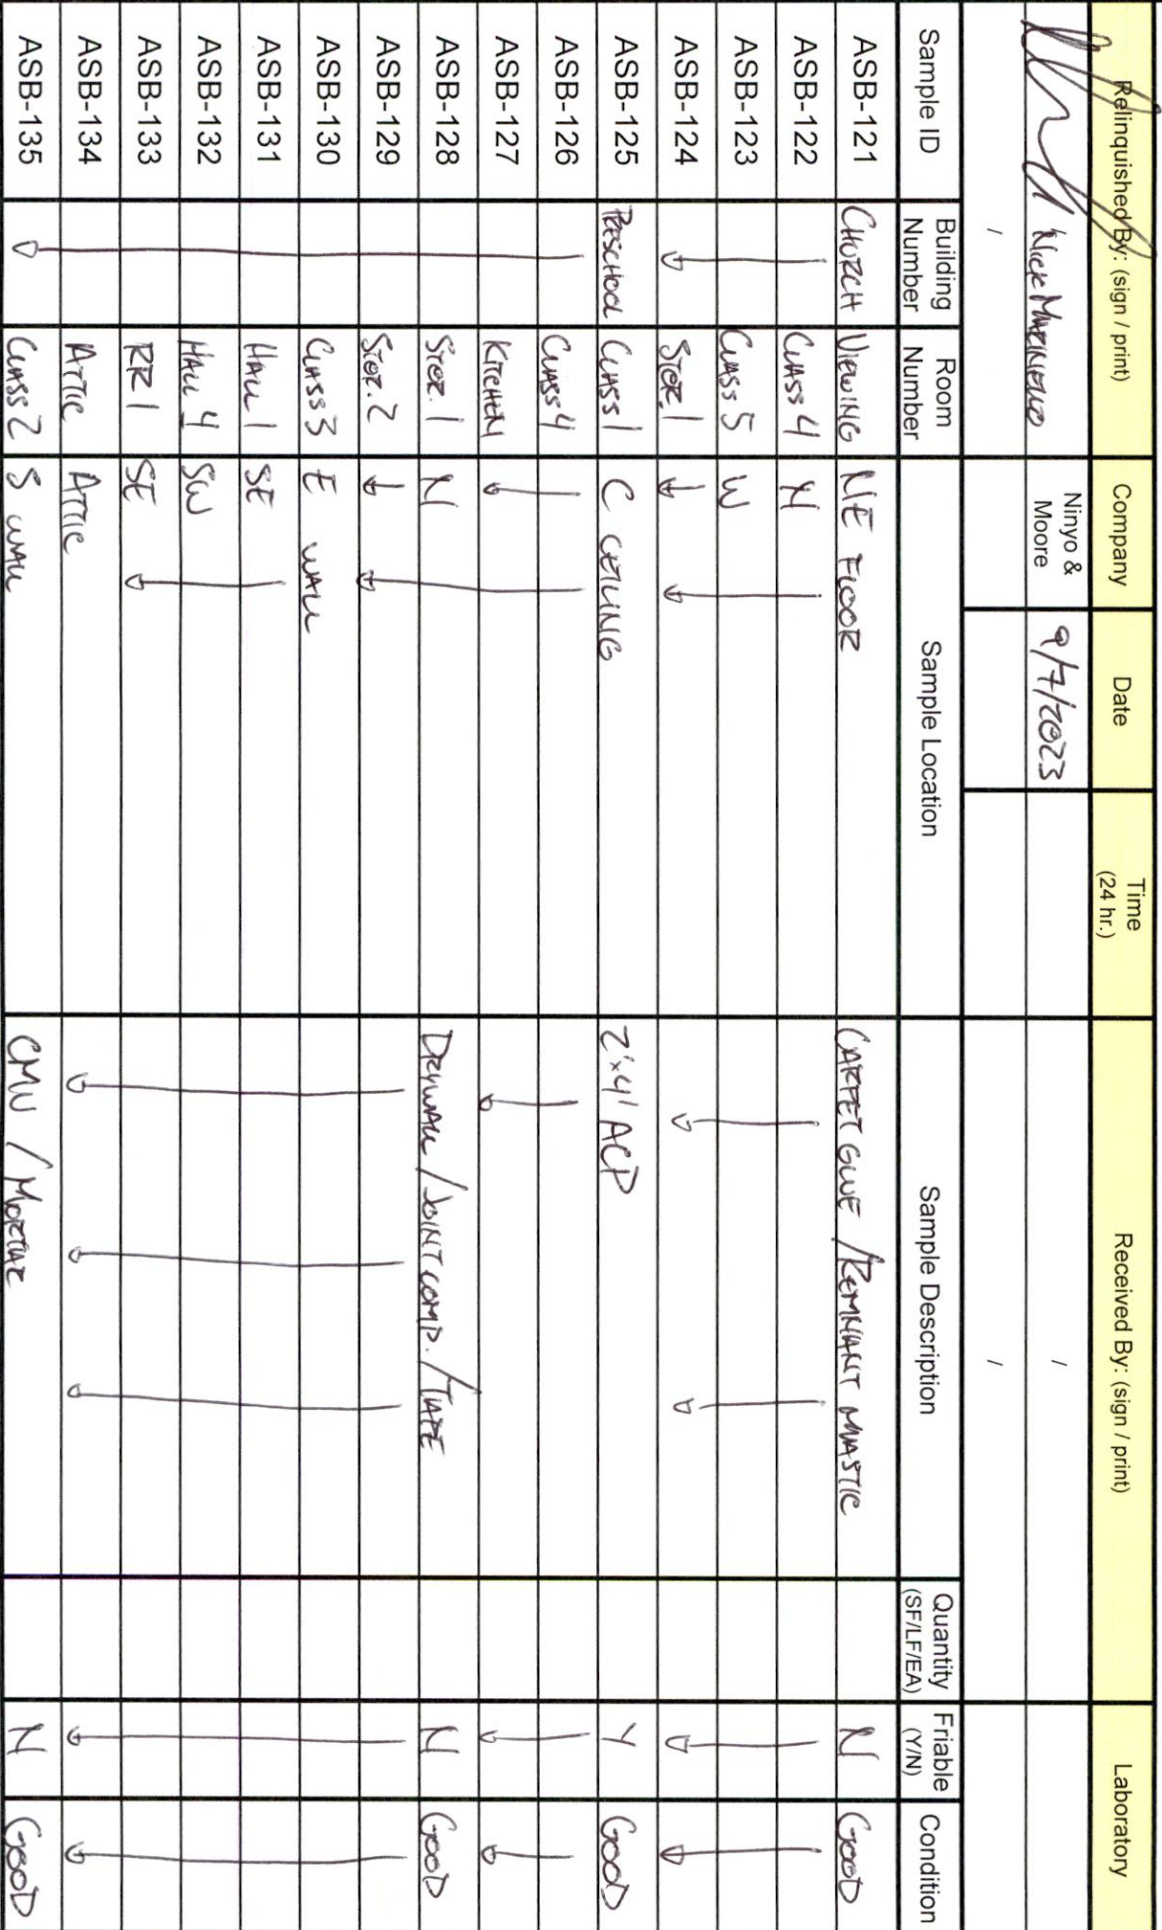 Relinquished By: (sign / print) Company Date Time (24 hr.) Received By: (sign / print) Laboratory
Nick Ninyo & Moore 9/7/2023 /
/ /
Sample ID Building Number Room Number Sample Location Sample Description Quantity (SF/LF/EA) Friable (Y/N) Condition
ASB-121 CHURCH VIEWING NE FLOOR CARPET GLUE / REMNANT MASTIC N GOOD
ASB-122 CLASS 4 N
ASB-123 CLASS 5 W
ASB-124 STOR. 1
ASB-125 PRESCHOOL CLASS 1 C CEILING 2'x4' ACP Y GOOD
ASB-126 CLASS 4
ASB-127 KITCHEN
ASB-128 STOR. 1 N DRYWALL / JOINT COMP. / TAPE N GOOD
ASB-129 STOR. 2
ASB-130 CLASS 3 E WALL
ASB-131 HALL 1 SE
ASB-132 HALL 4 SW
ASB-133 RR 1 SE
ASB-134 ATTIC ATTIC
ASB-135 CLASS 2 S WALL CMU / MORTAR N GOOD